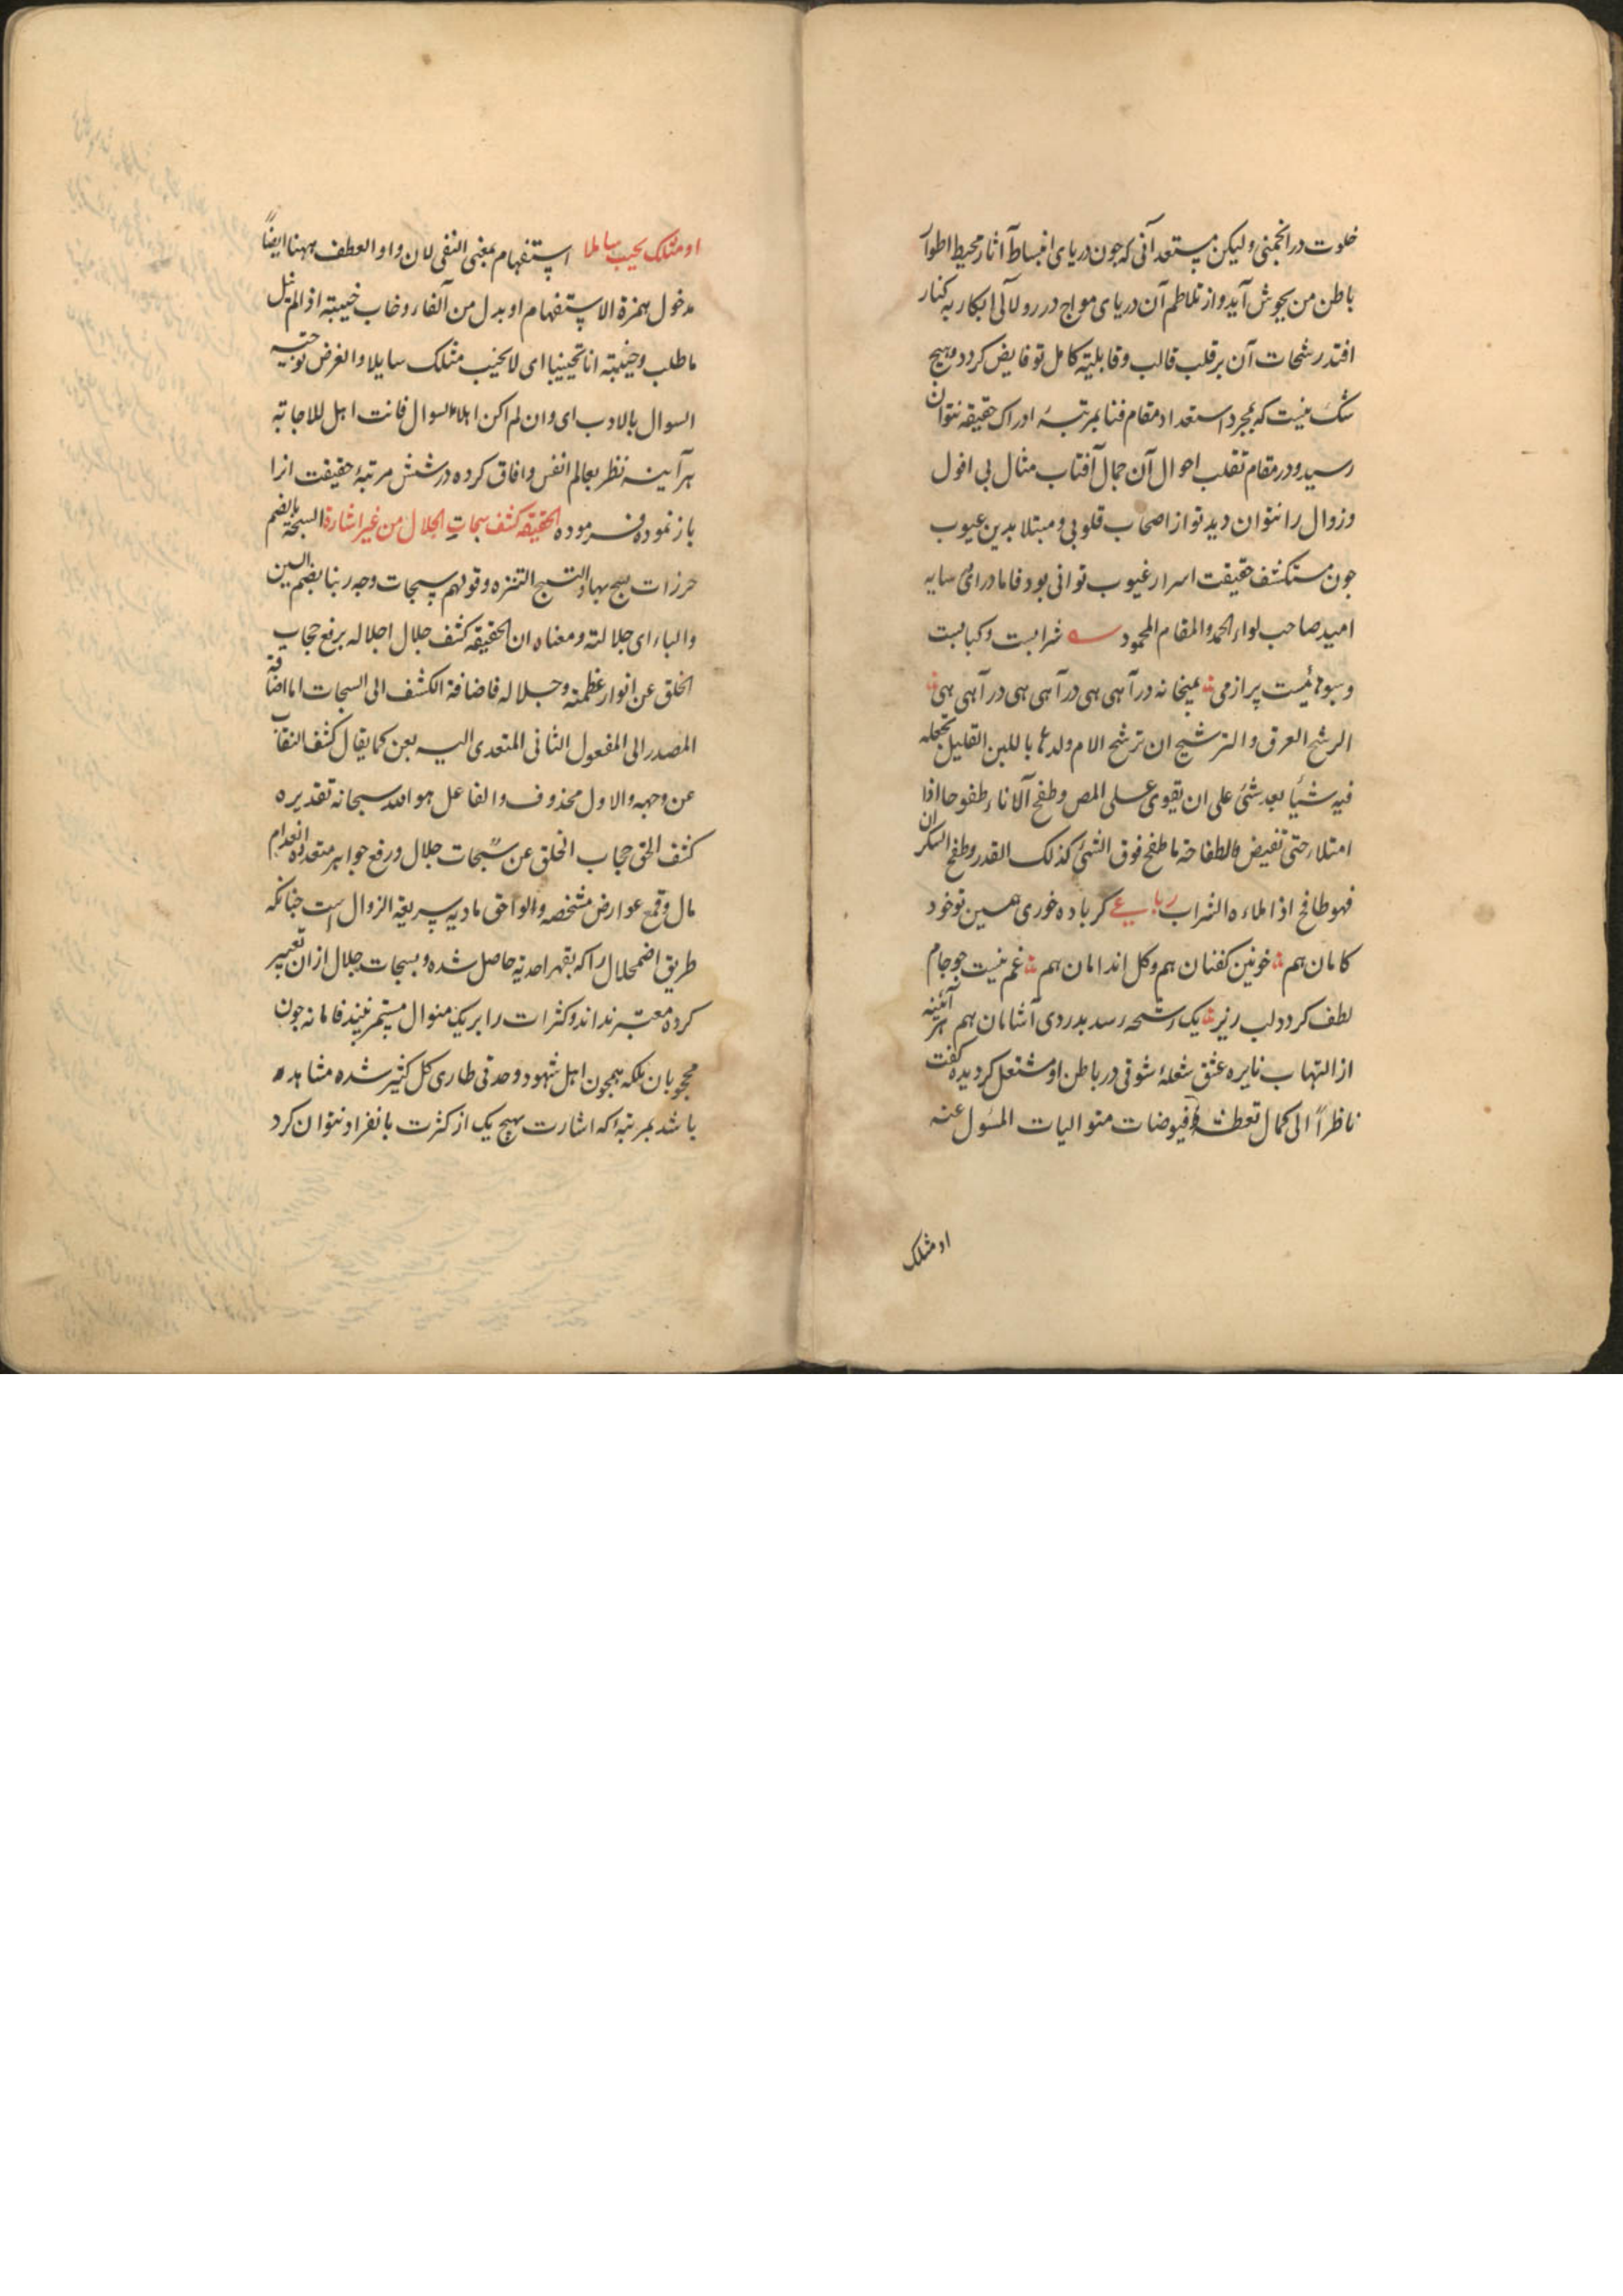 خلوت در انجمنی ولیکن مستعد آنی که جون دریای انبساط آثار محیط اطوار
باطن من بجوش آید و از تلاطم آن دریای مواج درر و لآلی ابکار به کنار
افتد رشحات آن بر قلب قالب و قابلیته کامل تو فایض کردد و هیچ
شک نیست که بمجرد استعداد مقام فنا بمرتبهٔ ادراک حقیقه نتوان
رسید و در مقام تقلب احوال آن جمال آفتاب مثال بی افول
و زوال را نتوان دید تو از اصحاب قلوبی و مبتلا بدین عیوب
جون مستکشف حقیقت اسرار غیوب توانی بود فاما درای سایه
امید صاحب لواء الحمد و المقام المحمود شرابست و کبابست
و سبوهائیست پر از می بمیخانه در آهی هی در آهی هی در آهی هی
الرشح العرق و الترشیح ان ترشح الام ولدها باللبن القلیل تجعله
فیه شیأ بعد شئ علی ان یقوی علی المص و طفح الاناء طفوحا اذا
امتلاء حتی تفیض والطفاحة ما طفح فوق الشئ کذلک القدر و طفح السکران
فهو طافح اذا ملاءه الشراب رباعی کر باده خوری همین تو خود
کامان هم خونین کفنان هم و کل اندامان هم غم نیست جو جام
لطف کردد لب ریز یک رشحه رسد بدردی آشامان هم هر آئینه
از التهاب نایره عشق شعلهٔ شوقی در باطن او مشتعل کردیده کفت
ناظراً الی کمال تعطفه و فیوضات متوالیات المسول عنه
او مثلک
او مثلک یخیب سایلا استفهام بمعنی النفی لان واو العطف ههنا ایضاً
مدخول بهمزة الاستفهام او بدل من الفاء و خاب خیبته اذا لم ینل
ما طلب و خیبته انا تخییبا ای لا یخیب مثلک سایلا و الغرض توجیه
السوال بالادب ای و ان لم اکن اهلا للسوال فانت اهل للاجابة
هر آینه نظر بعالم انفس و افاق کرده در شش مرتبهٔ حقیقت انرا
باز نموده فرموده الحقیقه کشف سبحات الجلال من غیر اشارة السبحة بالضم
خرزات یسبح بها و التسبیح التنزه و قولهم سبحات وجه ربنا بضم السین
و الباء ای جلالته و معناه ان الحقیقه کشف جلال اجلاله برفع حجاب
الخلق عن انوار عظمته و جلاله فاضافة الکشف الی السبحات اما اضافة
المصدر الی المفعول الثانی المتعدی الیه بعن کما یقال کشف النقاب
عن وجهه و الاول محذوف و الفاعل هو الله سبحانه تقدیره
کشف الحق حجاب الخلق عن سبحات جلال و رفع جواهر متعدده انعدام
مال و قمع عوارض مشخصه و لواحق مادیه سریعة الزوال است جنانکه
طریق اضمحلال را که بقهر احدیة حاصل شده و بسبحات جلال از ان تعبیر
کرده معتبر نداند و کثرات را بر یک منوال مستمر نبیند فاما نه جون
محجوبان بلکه همجون اهل شهود وحدتی طاری کل کثیر شده مشاهده
باشد بمرتبهٔ که اشارت بهیچ یک از کثرت بانفراد نتوان کرد